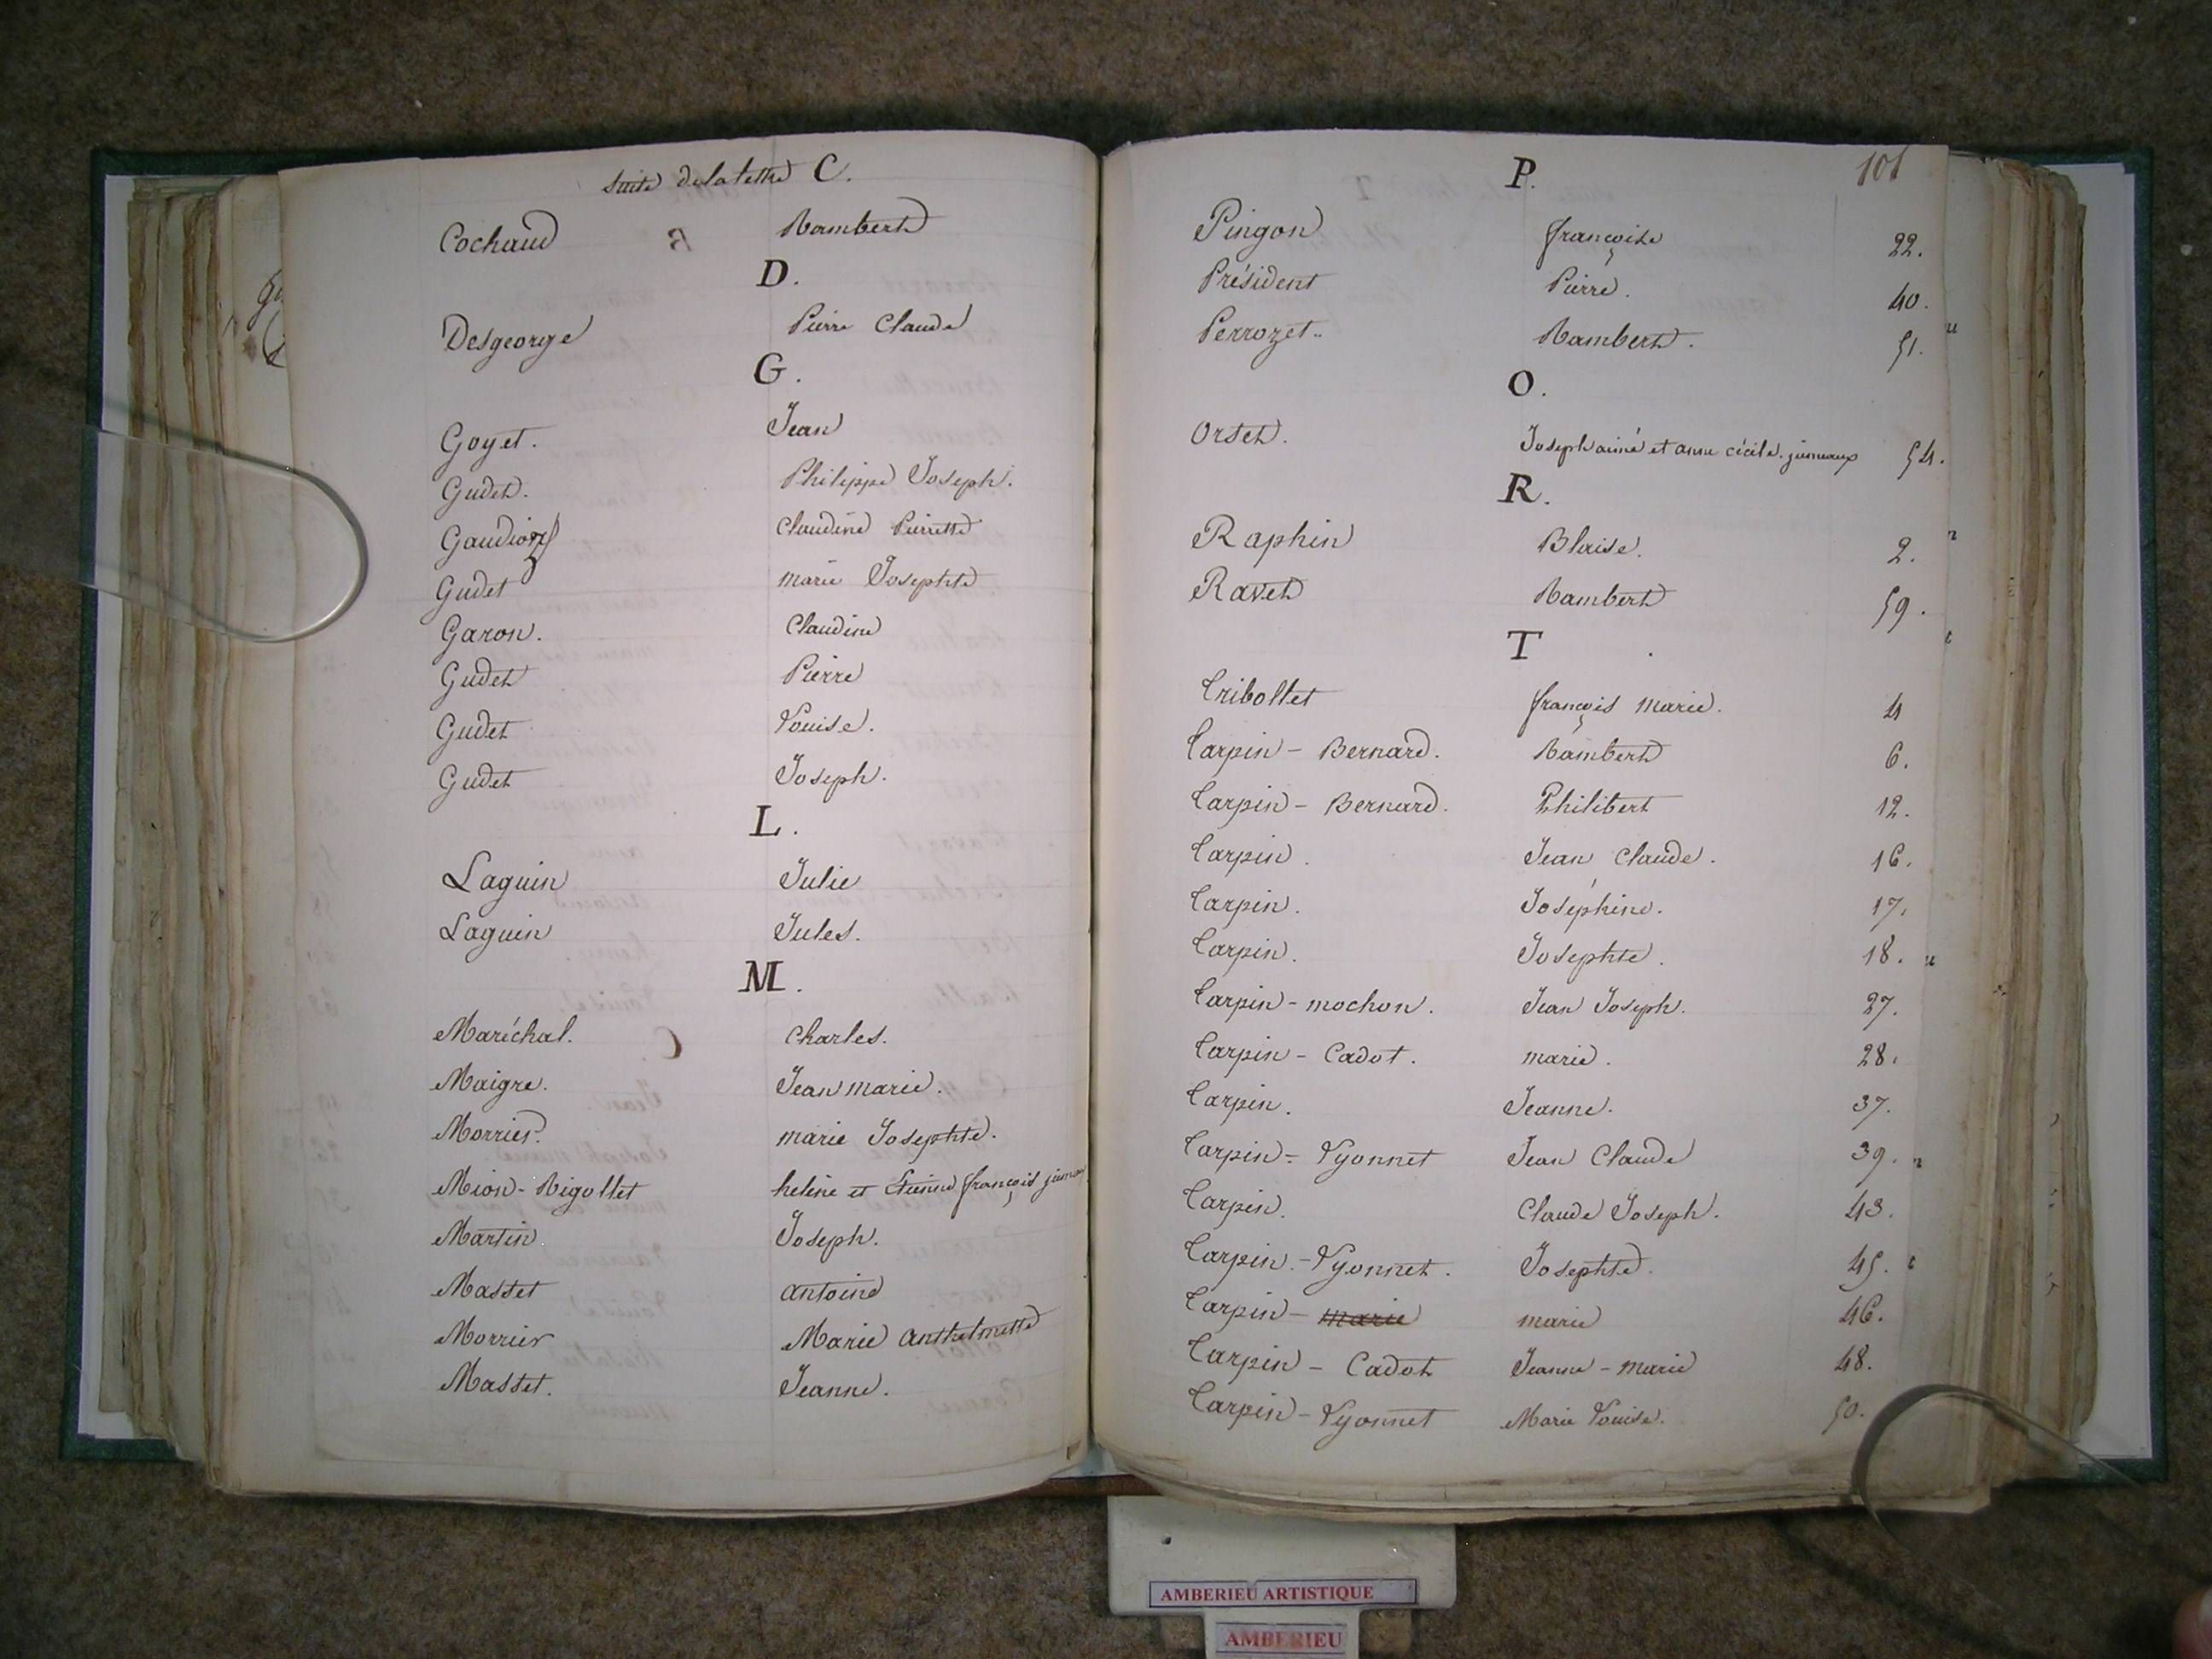 suite de la lettre C.
Cochaud Rambert
D.
Desgeorge Pierre Claude
G.
Goyet. Jean
Gudet. Philippe Joseph.
Gaudioz Claudine Pierrette
Gudet marie Josephte
Garon. Claudine
Gudet Pierre
Gudet Louise.
Gudet Joseph.
L.
Laguin Julie
Laguin Jules.
M.
Maréchal. Charles.
Maigre. Jean marie.
Morrier. marie Josephte.
Mion-Rigollet heléne et Etienne françois
Martin. Joseph.
Masset antoine
Morrier Marie Anthelmette
Masset. Jeanne.
101
P.
Pingon françoise 22.
Président Pierre. 40.
Perrozet.. Rambert. 51.
O.
Orset. Joseph aimé et anne cécile. jumeaux 54.
R.
Raphin Blaise. 2.
Ravet Rambert 59.
T
Tribollet françois marie. 4
Tarpin - Bernard. Rambert 6.
Tarpin - Bernard. Philibert 12.
Tarpin. Jean Claude. 16.
Tarpin. Joséphine. 17.
Tarpin. Josephte. 18.
Tarpin - mochon. Jean Joseph. 27.
Tarpin - Cadot. marie. 28.
Tarpin. Jeanne. 37.
Tarpin - Lyonnet Jean Claude 39.
Tarpin. Claude Joseph. 43.
Tarpin. - Lyonnet. Josephte. 45.
Tarpin - marie marie 46.
Tarpin - Cadot Jeanne - marie 48.
Tarpin - Lyonnet Marie Louise. 50.
AMBERIEU ARTISTIQUE
AMBERIEU